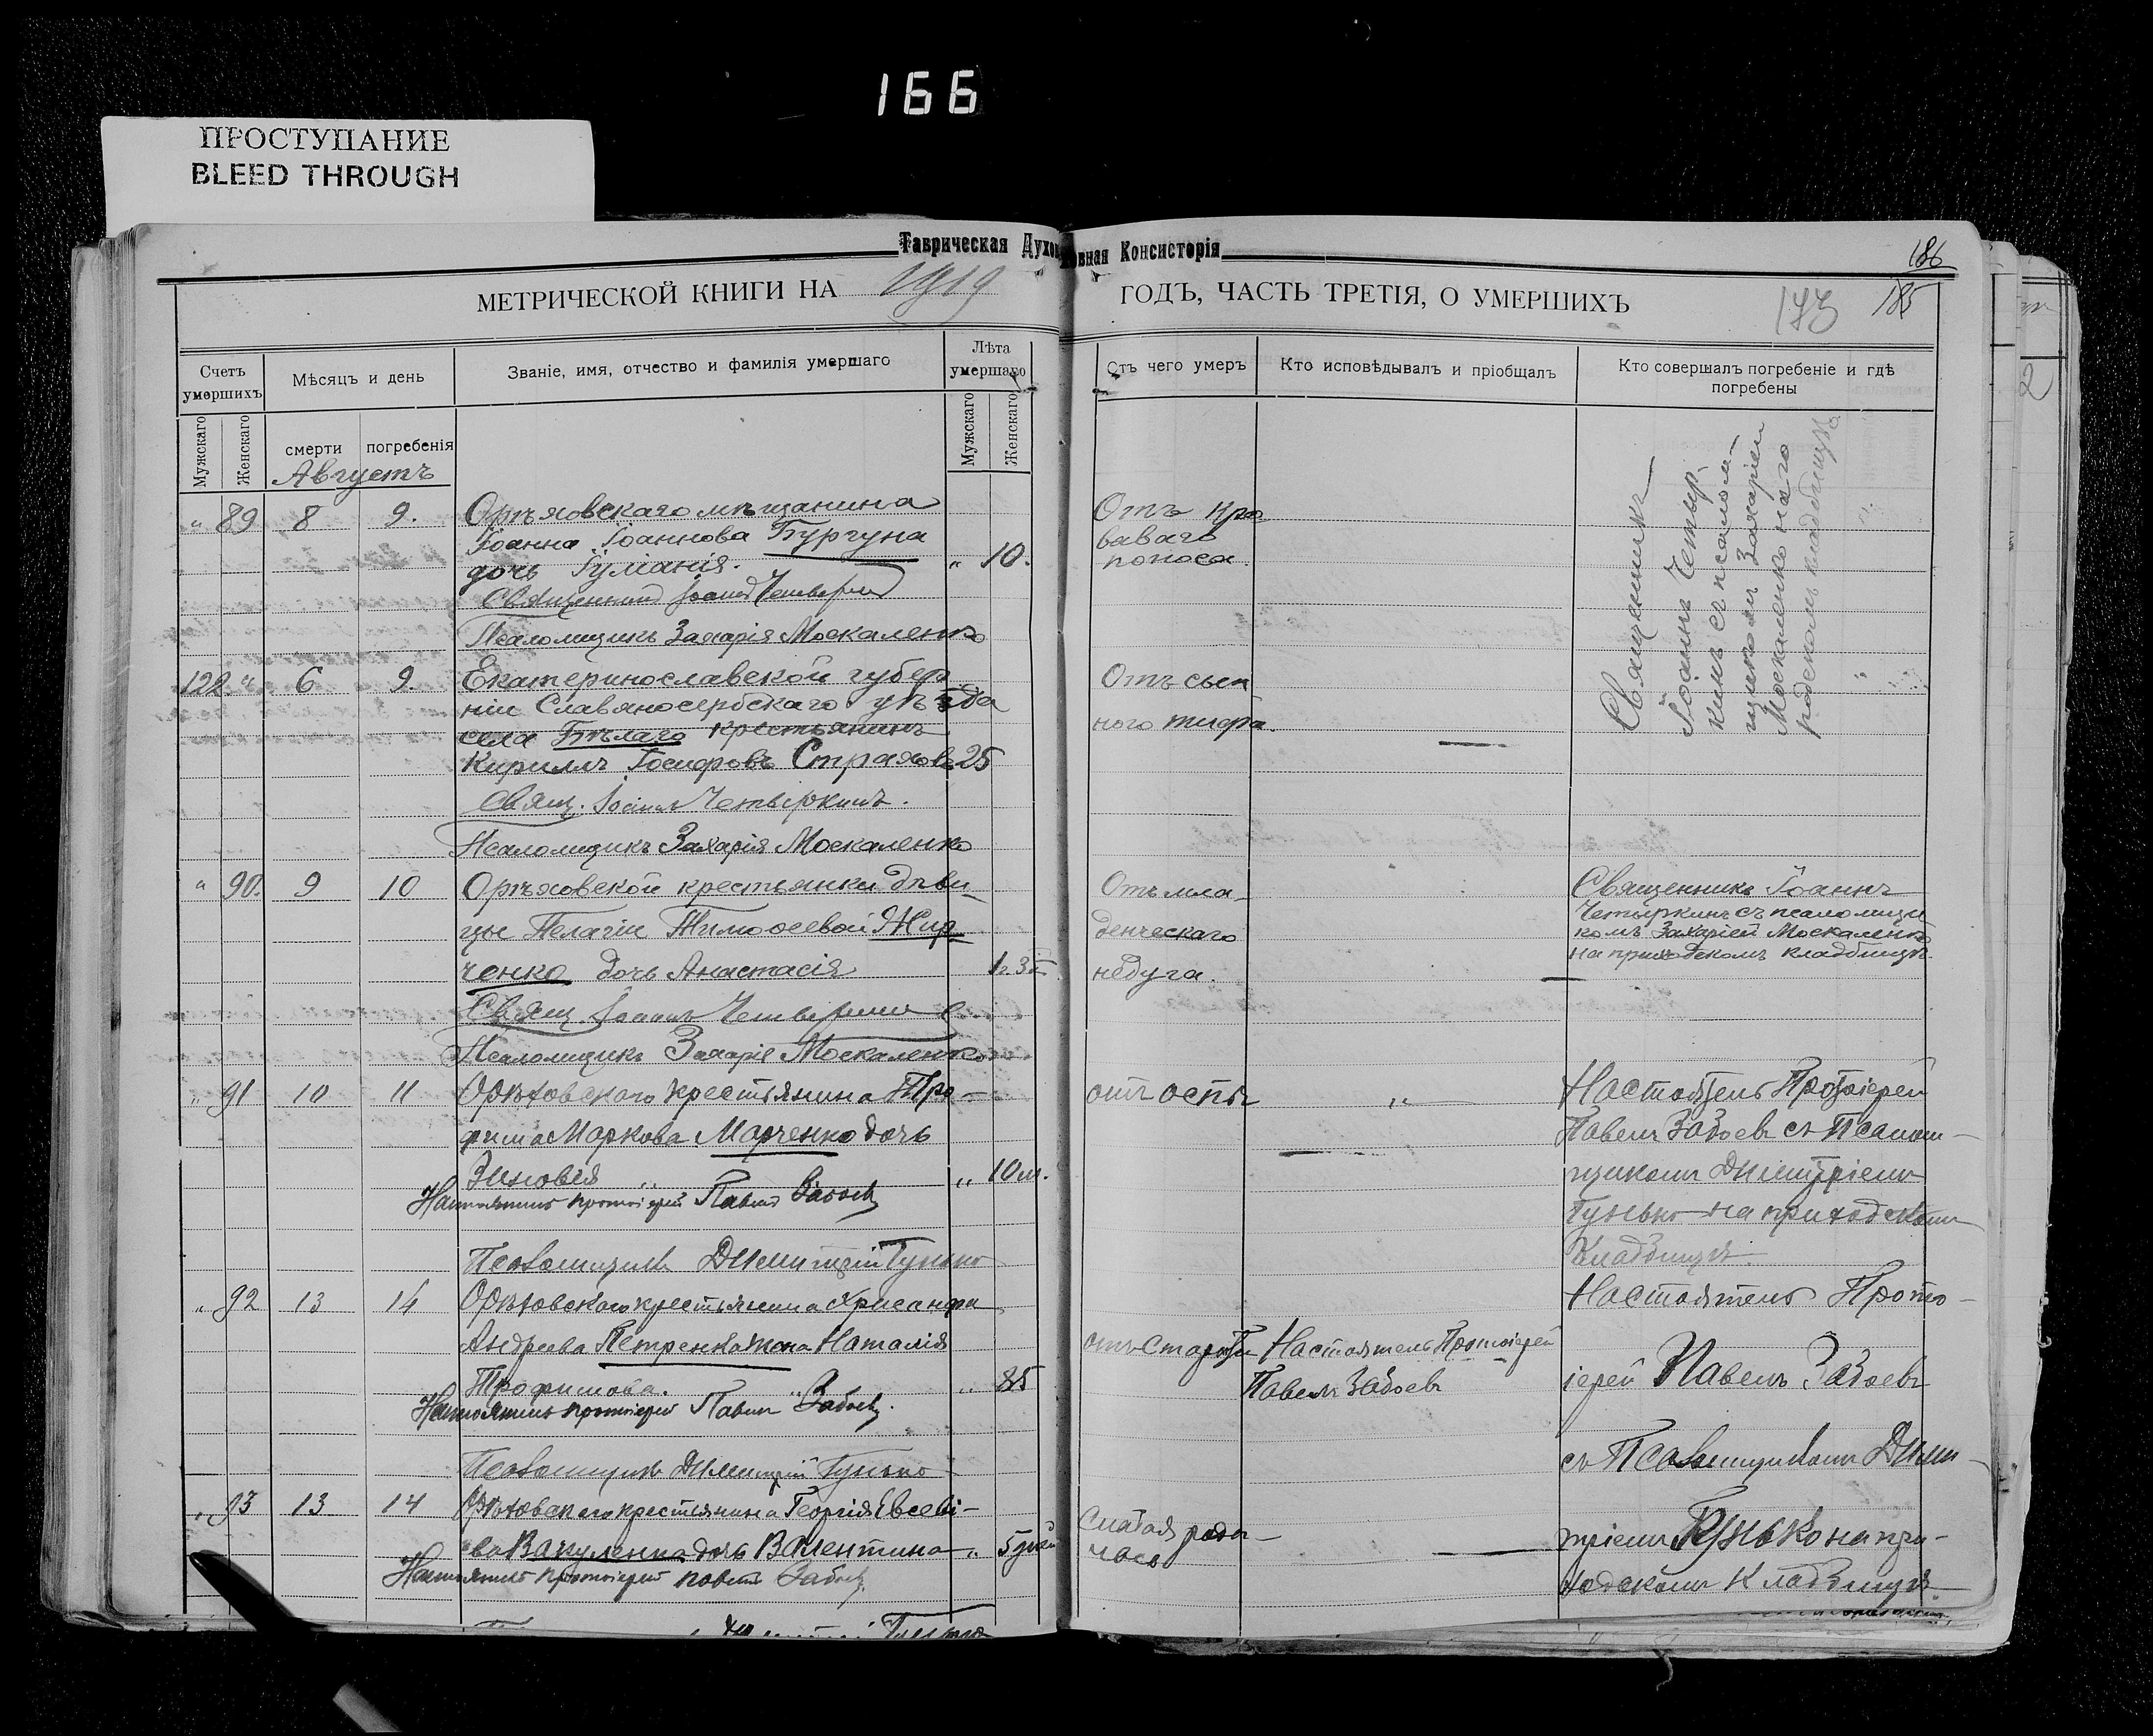 166
ПРОСТУПАНИЕ
BLEED THROUGH
Таврическая Духовная Консисторія
186
МЕТРИЧЕСКОЙ КНИГИ НА 1919 ГОДЪ, ЧАСТЬ ТРЕТІЯ, О УМЕРШИХЪ
173 185
Счетъ умершихъ
Мѣсяцъ и день
Званіе, имя, отчество и фамилія умершаго
Лѣта умершаго
Отъ чего умеръ
Кто исповѣдывалъ и пріобщалъ
Кто совершалъ погребеніе и гдѣ погребены
Мужскаго
Женскаго
смерти
погребенія
Мужскаго
Женскаго
Августъ
" 89 8 9. Орѣховскаго мѣщанина
Іоанна Іоаннова Бургуна
дочь Іуліанія. " 10.
Отъ кро
ваваго
поноса.
Священникъ
Іоаннъ Четыр-
кинъ съ псалом-
щикомъ Захаріей
Москаленко на
Священникъ Іоаннъ Четыркинъ
Псаломщикъ Захарія Москаленко
122 " 6 9. Екатеринославской губер
ніи Славяносербскаго уѣзда
села Бѣлаго крестьянинъ
Кириллъ Іосифовъ Страховъ 25
Отъ сып
ного тифа.
Свящ. Іоаннъ Четыркинъ.
Псаломщикъ Захарія Москаленко
" 90. 9 10 Орѣховской крестьянки дѣви
цы Пелагіи Тимоѳеевой Жир
ченко дочь Анастасія
Отъ мла-
денческаго
недуга.
Священникъ Іоаннъ
Четыркинъ съ псаломщи
комъ Захаріей Москаленко
на приходскомъ кладбищѣ.
Свящ. Іоаннъ Четыркинъ
Псаломщикъ Захарія Москаленко
" 91 10 11 Орѣховскаго крестьянина Тро-
фима Маркова Марченко дочь
Зиновія " " 10 м.
отъ оспы "
Настоятель Протоіерей
Павелъ Забоевъ съ Псалом-
щикомъ Димитріемъ
Гунько на приходскомъ
Кладбищѣ.
Настоятель протоіерей Павелъ Забоевъ
Псаломщикъ Димитрій Гунько
" 92 13 14 Орѣховскаго крестьянина Хрисанфа
Андреева Петренка жена Наталія
Трофимова. " " 85
отъ Старости
Настоятель Протоіерей
Павелъ Забоевъ
Настоятель Прото-
іерей Павелъ Забоевъ
съ Псаломщикомъ Дими-
тріемъ Гунько на при-
ходскомъ Кладбищѣ
Настоятель протоіерей Павелъ Забоевъ.
Псаломщикъ Димитрій Гунько
" 93 13 14 Орѣховскаго крестьянина Георгія Евсеві-
ева Вакуленка дочь Валентина " 5 дней
Слабая роди-
лась
Настоятель протоіерей Павелъ Забоевъ